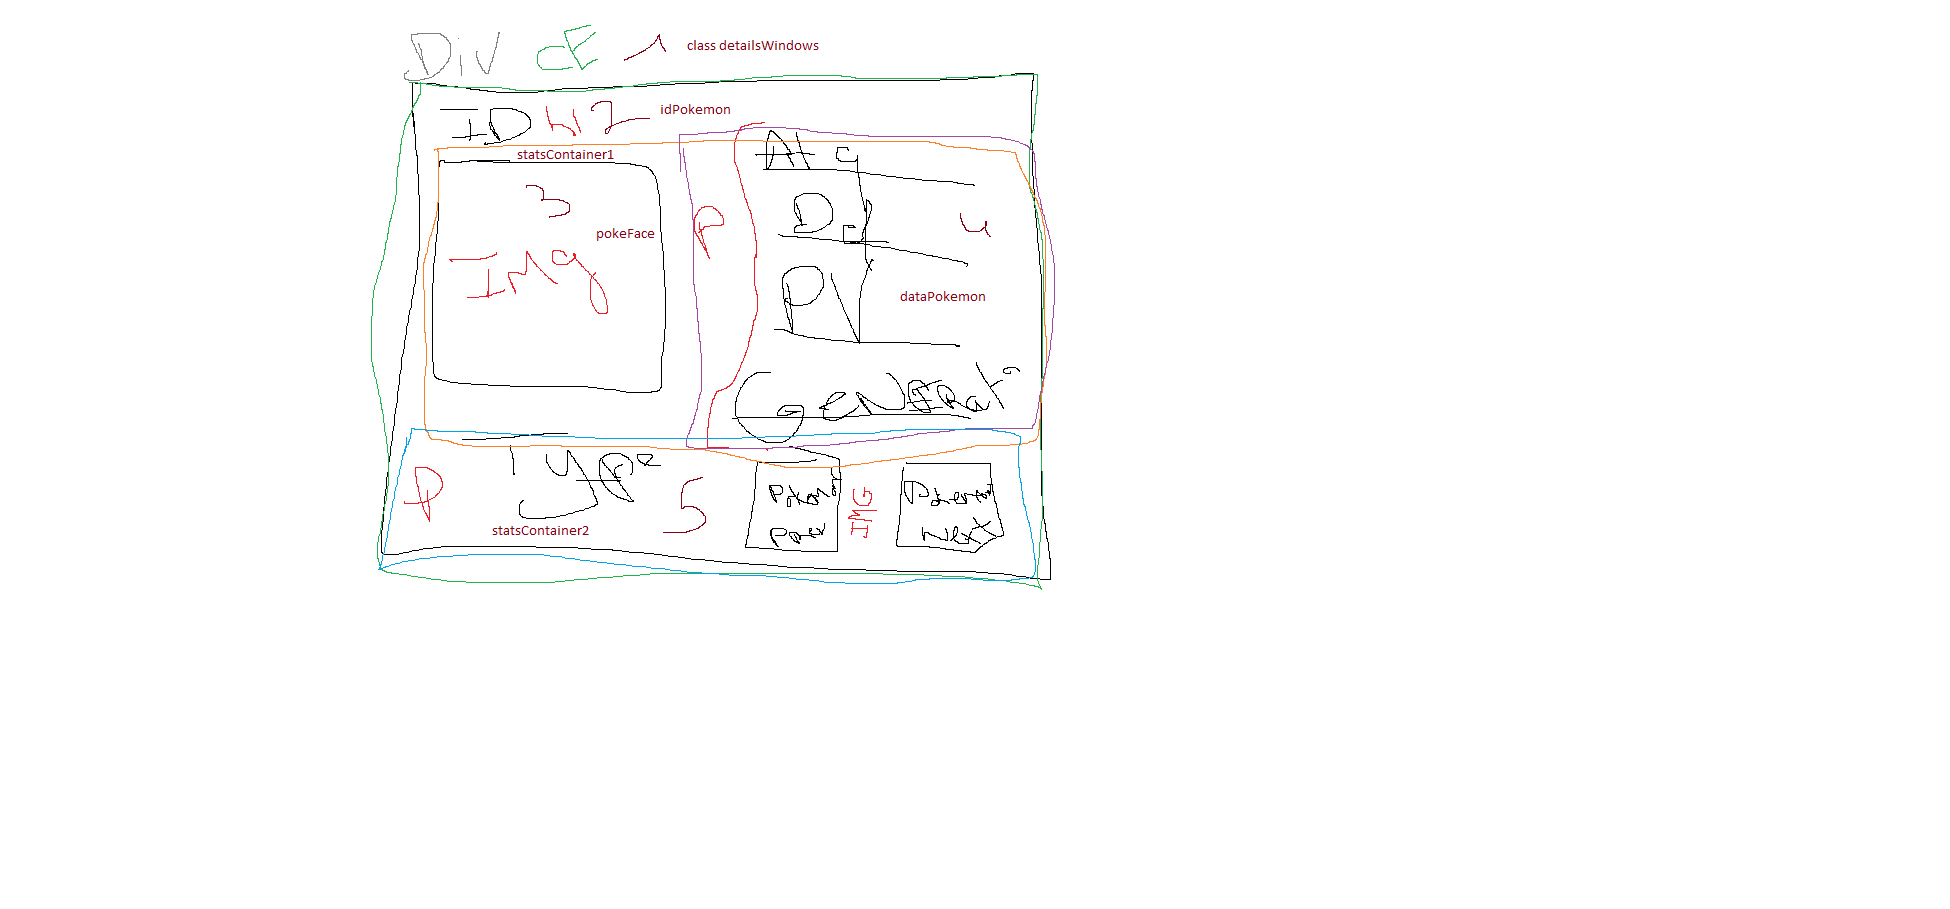 DiV CE 1 class detailsWindows
ID h1 2 idPokemon
statsContainer1
3
IMg
pokeFace
P
Atq
Def
4
PV
dataPokemon
GeNERat°
P
Type
5
statsContainer2
IMG
Pokemon
Next